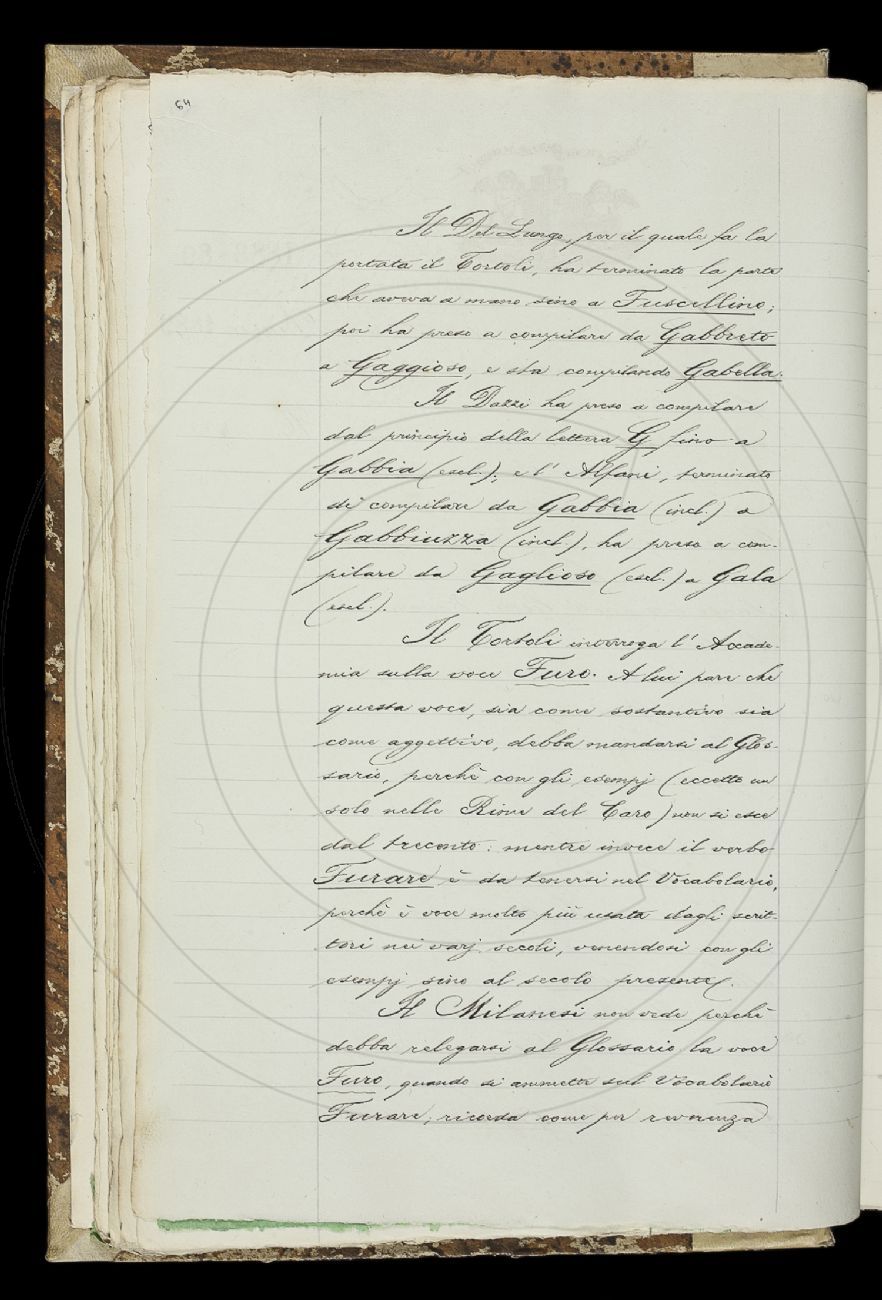 64
Il Del Lungo, per il quale fa la
portata il Tortoli, ha terminato la parte
che aveva a mano sino a Fuscellino;
poi ha preso a compilare da Gabbreto
a Gaggioso, e sta compilando Gabella.
Il Dazzi ha preso a compilare
dal principio della lettera G fino a
Gabbia (escl.); e l' Alfani, terminato
di compilare da Gabbia (incl.) a
Gabbiuzza (incl.), ha preso a com-
pilare da Gaglioso (escl.) a Gala
(escl.).
Il Tortoli interroga l' Accade-
mia sulla voce Furo. A lui pare che
questa voce, sia come sostantivo sia
come aggettivo, debba mandarsi al Glos-
sario, perchè con gli esempj (eccetto un
solo nelle Rime del Caro) non si esce
dal trecento: mentre invece il verbo
Furare è da tenersi nel Vocabolario,
perchè è voce molto più usata dagli scrit-
tori nei varj secoli, venendosi con gli
esempj sino al secolo presente.
Il Milanesi non vede perchè
debba relegarsi al Glossario la voce
Furo, quando si ammette sul Vocabolario
Furare; ricorda come per reverenza